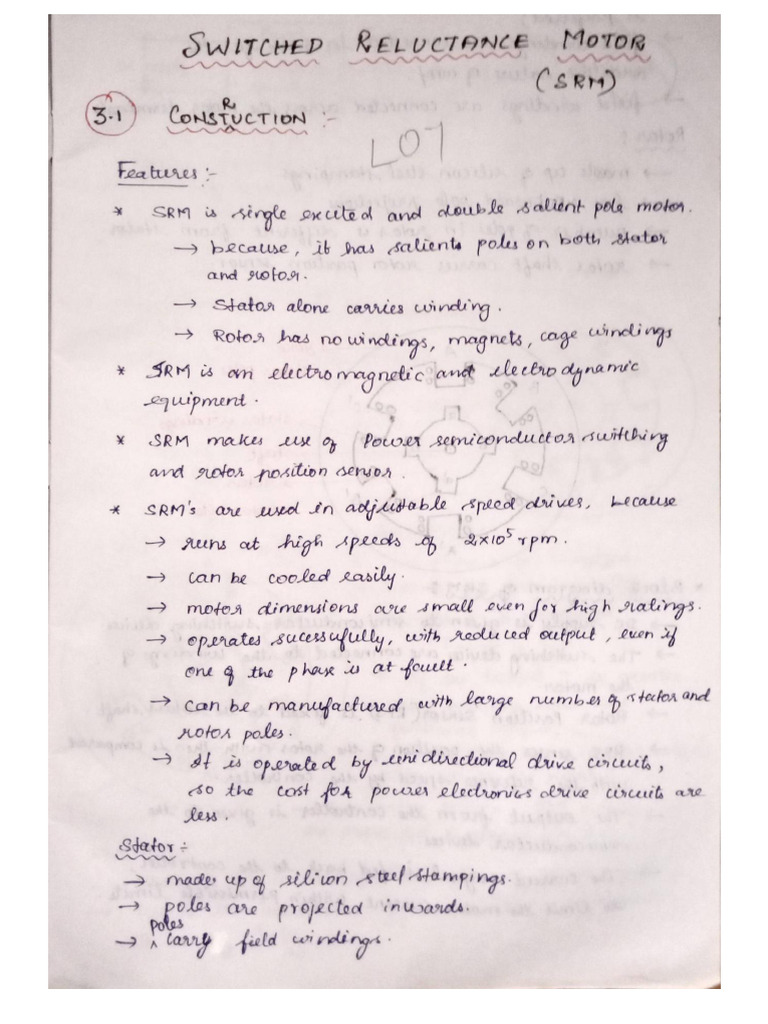 SWITCHED RELUCTANCE MOTOR
(SRM)
3.1 CONSTRUCTION :-
LO7
Features :-
* SRM is single excited and double salient pole motor.
→ because, it has salients poles on both stator
and rotor.
→ Stator alone carries winding.
→ Rotor has no windings, magnets, cage windings
* SRM is an electromagnetic and electrodynamic
equipment.
* SRM makes use of Power semiconductor switching
and rotor position sensor.
* SRM's are used in adjustable speed drives, because
→ runs at high speeds of 2×10⁵ rpm.
→ can be cooled easily.
→ motor dimensions are small even for high ratings.
→ operates sucessufully, with reduced output, even if
one of the phase is at fault.
→ can be manufactured with large numbers of stator and
rotor poles.
→ It is operated by unidirectional drive circuits,
so the cost for power electronics drive circuits are
less.
Stator :-
→ made up of silicon steel stampings.
→ poles are projected inwards.
→ poles carry field windings.